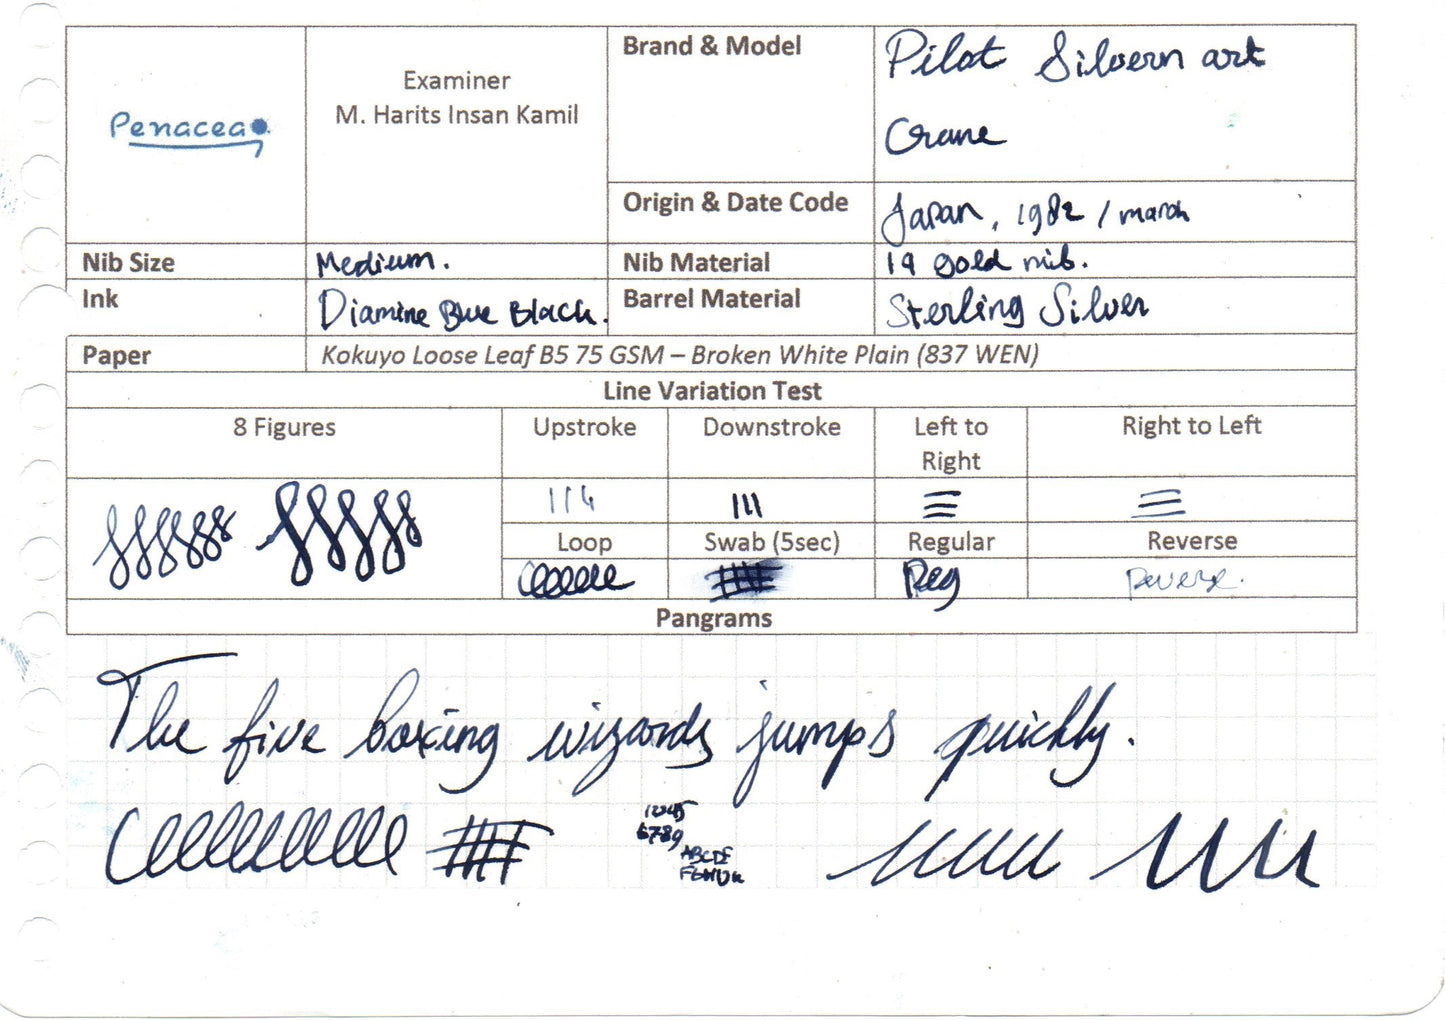 Penacea
Examiner
M. Harits Insan Kamil
Brand & Model
Pilot Silvern art
Crane
Origin & Date Code
Japan, 1982 / march
Nib Size
Medium.
Nib Material
14 gold nib.
Ink
Diamine Blue Black.
Barrel Material
Sterling Silver
Paper
Kokuyo Loose Leaf B5 75 GSM – Broken White Plain (837 WEN)
Line Variation Test
8 Figures
Upstroke
Downstroke
Left to
Right
Right to Left
Loop
Swab (5sec)
Regular
Reverse
Reg
Reverse.
Pangrams
The five boxing wizards jumps quickly.
12345
6789
ABCDE